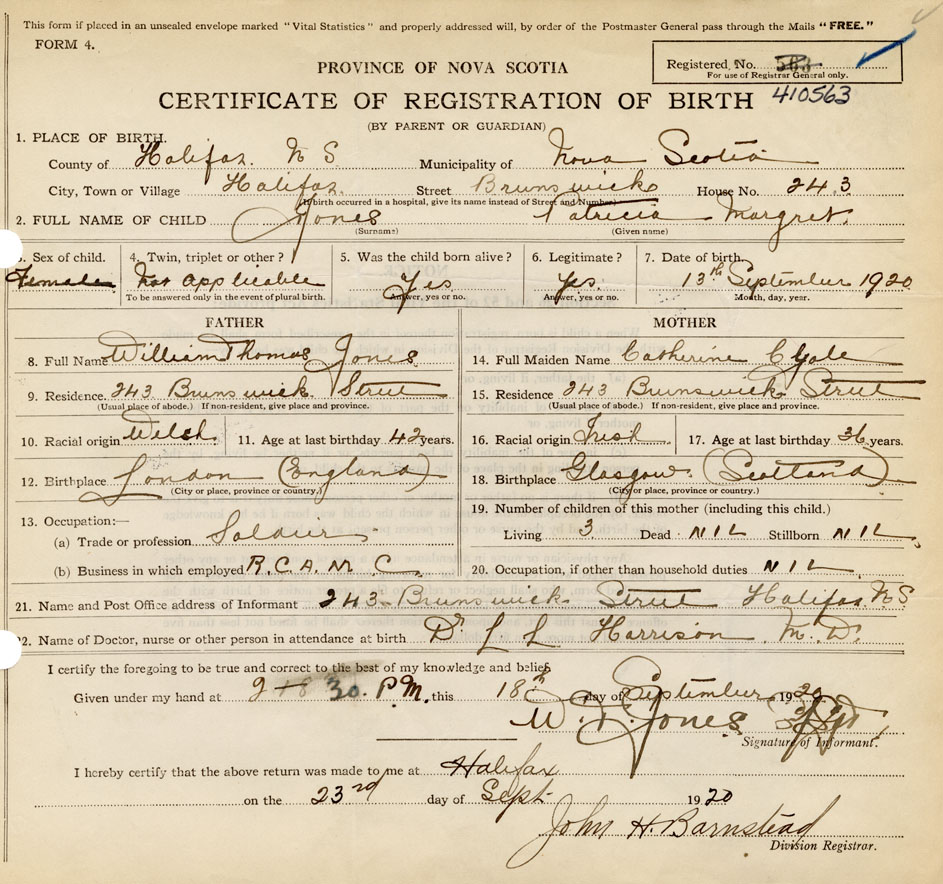 This form if placed in an unsealed envelope marked "Vital Statistics" and properly addressed will, by order of the Postmaster General pass through the Mails "FREE."
FORM 4.
Registered, No. 583
For use of Registrar General only.
410563
PROVINCE OF NOVA SCOTIA
CERTIFICATE OF REGISTRATION OF BIRTH
(BY PARENT OR GUARDIAN)
1. PLACE OF BIRTH.
County of Halifax. N S Municipality of Nova Scotia
City, Town or Village Halifax. Street Brunswick House No. 243
(If birth occurred in a hospital, give its name instead of Street and Number)
2. FULL NAME OF CHILD Jones Patricia Margret.
(Surname) (Given name)
3. Sex of child. 4. Twin, triplet or other? 5. Was the child born alive? 6. Legitimate? 7. Date of birth.
Female Not Applicable Yes Yes. 13th September 1920
To be answered only in the event of plural birth. Answer, yes or no. Answer, yes or no. Month, day, year.
FATHER
8. Full Name William Thomas Jones
9. Residence. 243 Brunswick Street
(Usual place of abode.) If non-resident, give place and province.
10. Racial origin Welsh. 11. Age at last birthday 42 years.
12. Birthplace London (England)
(City or place, province or country.)
13. Occupation:—
(a) Trade or profession Soldier
(b) Business in which employed R.C.A.M.C.
MOTHER
14. Full Maiden Name Catherine Clyde
15. Residence 243 Brunswick Street
(Usual place of abode.) If non-resident, give place and province.
16. Racial origin Irish 17. Age at last birthday 36 years.
18. Birthplace Glasgow (Scotland)
(City or place, province or country.)
19. Number of children of this mother (including this child.)
Living 3 Dead NIL Stillborn NIL
20. Occupation, if other than household duties NIL
21. Name and Post Office address of Informant 243 Brunswick Street Halifax NS
22. Name of Doctor, nurse or other person in attendance at birth Dr L L Harrison M.D.
I certify the foregoing to be true and correct to the best of my knowledge and belief.
Given under my hand at 30. P.M. this 18th day of September 1920
W. T. Jones
Signature of Informant.
I hereby certify that the above return was made to me at Halifax
on the 23rd day of Sept. 1920
John H. Barnstead
Division Registrar.